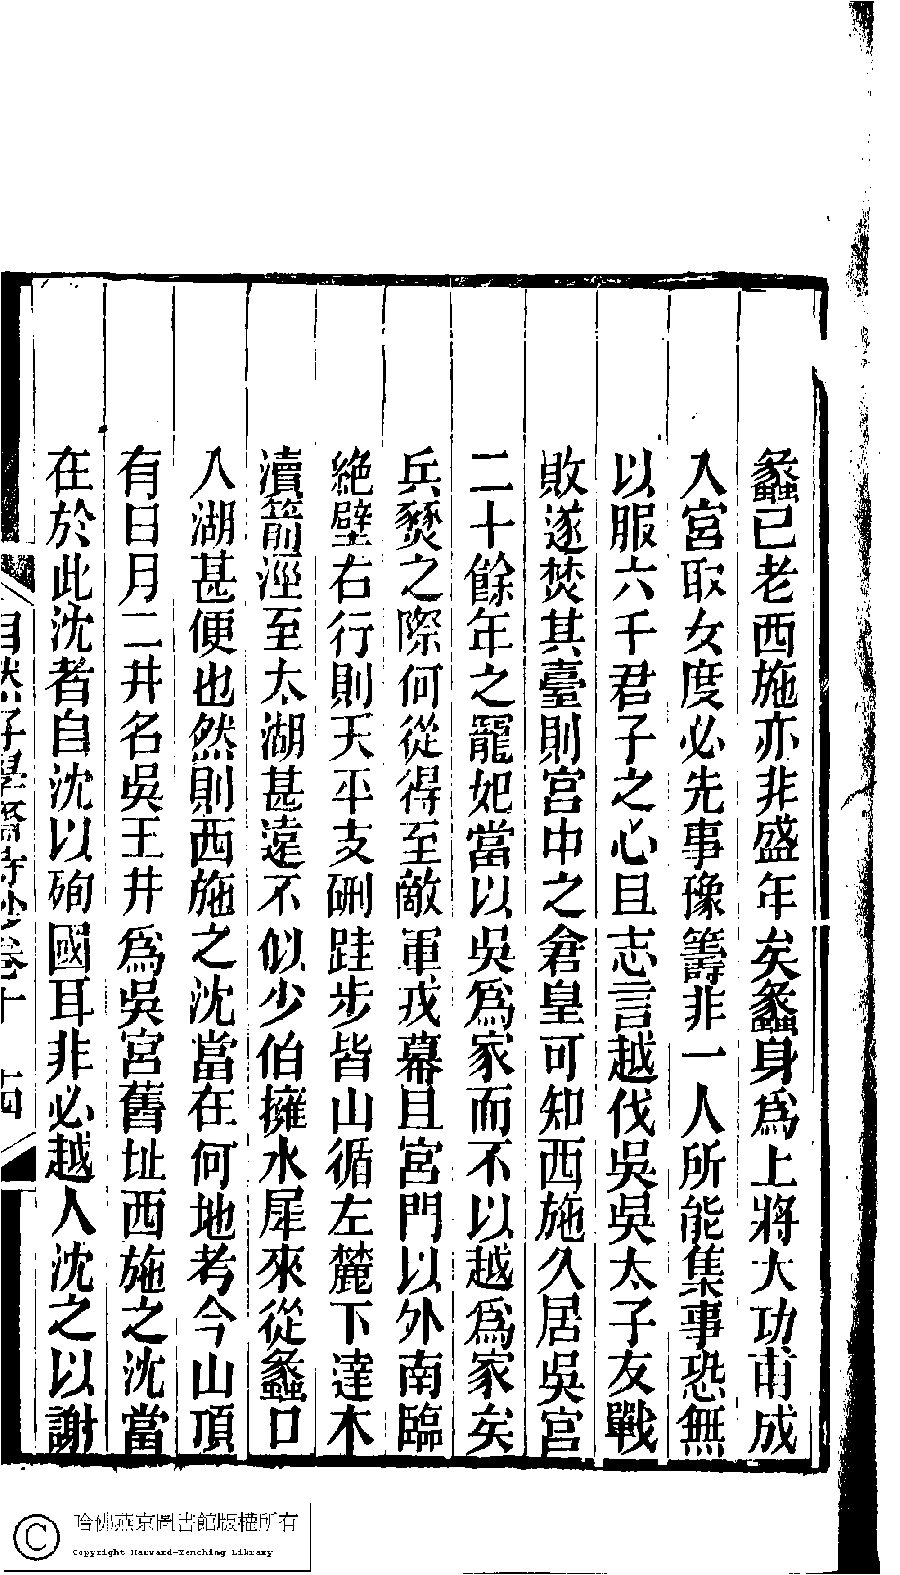 蠡已老西施亦非盛年矣蠡身爲上將大功甫成
入宮取女度必先事豫籌非一人所能集事恐無
以服六千君子之心且志言越伐吳吳太子友戰
敗遂焚其臺則宮中之倉皇可知西施久居吳宮
二十餘年之寵妃當以吳爲家而不以越爲家矣
兵燹之際何從得至敵軍戎幕且宮門以外南臨
絶壁右行則天平支硎跬步皆山循左麓下達木
瀆箭涇至太湖甚遠不似少伯擁水犀來從蠡口
入湖甚便也然則西施之沈當在何地考今山頂
有日月二井名吳王井爲吳宮舊址西施之沈當
在於此沈者自沈以殉國耳非必越人沈之以謝
自然好學齋詩鈔卷十 十四
哈佛燕京圖書館版權所有
Copyright Harvard-Yenching Library